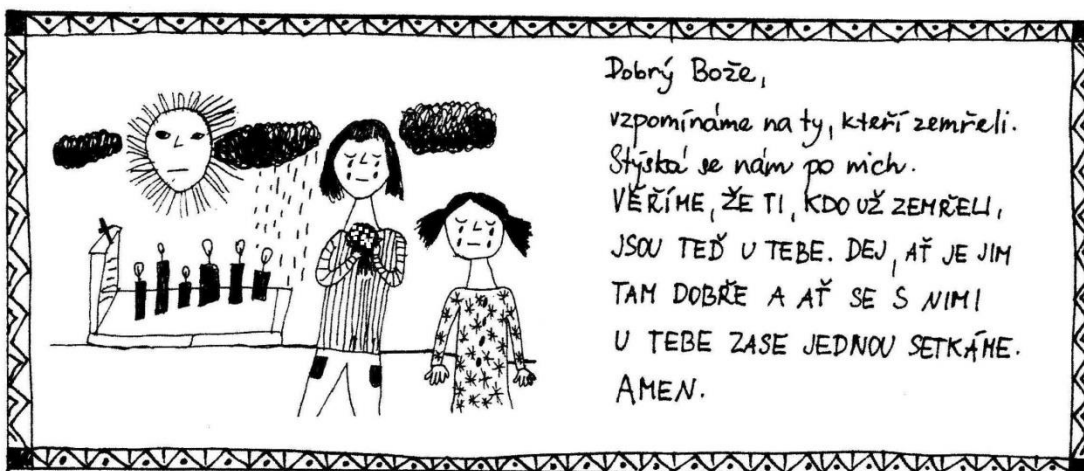 Dobrý Bože,
vzpomínáme na ty, kteří zemřeli.
Stýská se nám po nich.
VĚŘÍME, ŽE TI, KDO UŽ ZEMŘELI,
JSOU TEĎ U TEBE. DEJ, AŤ JE JIM
TAM DOBŘE A AŤ SE S NIMI
U TEBE ZASE JEDNOU SETKÁME.
AMEN.